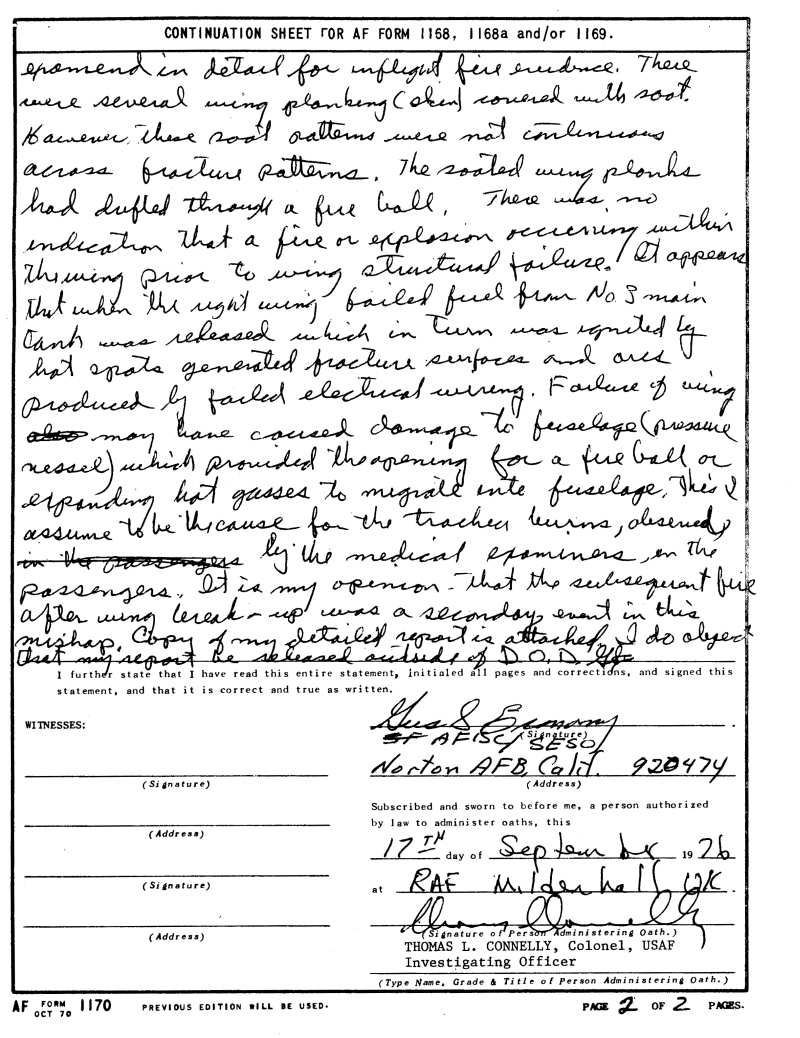 CONTINUATION SHEET FOR AF FORM 1168, 1168a and/or 1169.
epomend in detail for inflight fire evidence. There
were several wing planking (skin) covered with soot.
However, these soot patterns were not continuous
across fracture patterns. The sooted wing planks
had drifted through a fire ball. There was no
indication that a fire or explosion occurring within
the wing prior to wing structural failure. It appears
that when the right wing failed fuel from No. 3 main
tank was released which in turn was ignited by
hot spots generated fracture surfaces and arcs
produced by failed electrical wiring. Failure of wing
also may have caused damage to fuselage (pressure
vessel) which provided the opening for a fire ball or
expanding hot gasses to migrate into fuselage. This I
assume to be the cause for the trachea burns, observed
in the passengers by the medical examiners, on the
passengers. It is my opinion - that the subsequent fire
after wing break-up was a secondary event in this
mishap. Copy of my detailed report is attached. I do object
that my report be released outside of D.O.D.
I further state that I have read this entire statement, initialed all pages and corrections, and signed this
statement, and that it is correct and true as written.
WITNESSES:
(Signature)
AFISC/SESO
Norton AFB, Calif. 920474
(Signature)
(Address)
Subscribed and sworn to before me, a person authorized
by law to administer oaths, this
(Address)
17TH day of September 1976
(Signature)
at RAF Mildenhall UK.
(Address)
(Signature of Person Administering Oath.)
THOMAS L. CONNELLY, Colonel, USAF
Investigating Officer
(Type Name, Grade & Title of Person Administering Oath.)
AF FORM OCT 70 1170 PREVIOUS EDITION WILL BE USED. PAGE 2 OF 2 PAGES.